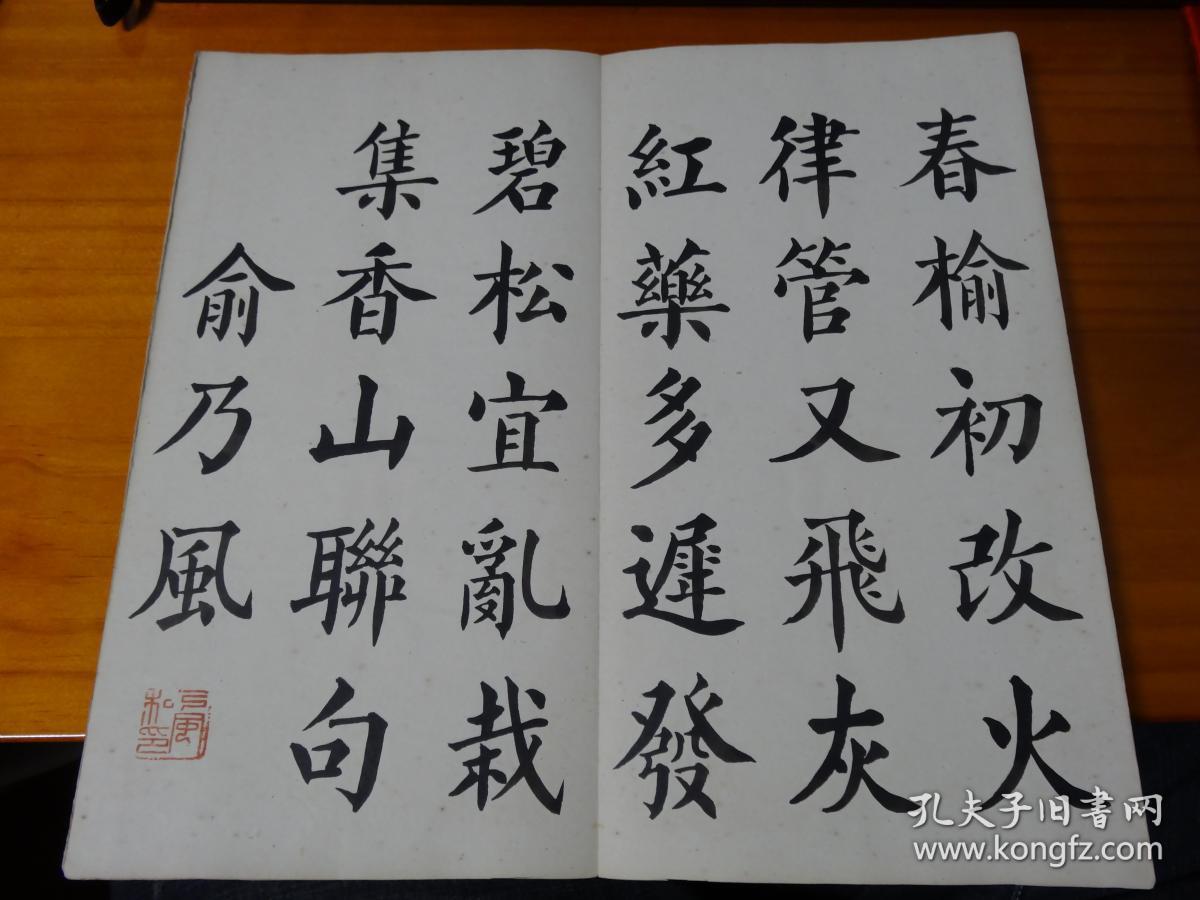 春榆初改火
律管又飛灰
紅藥多遲發
碧松宜亂栽
集香山聯句
俞乃風
孔夫子旧书网
www.kongfz.com